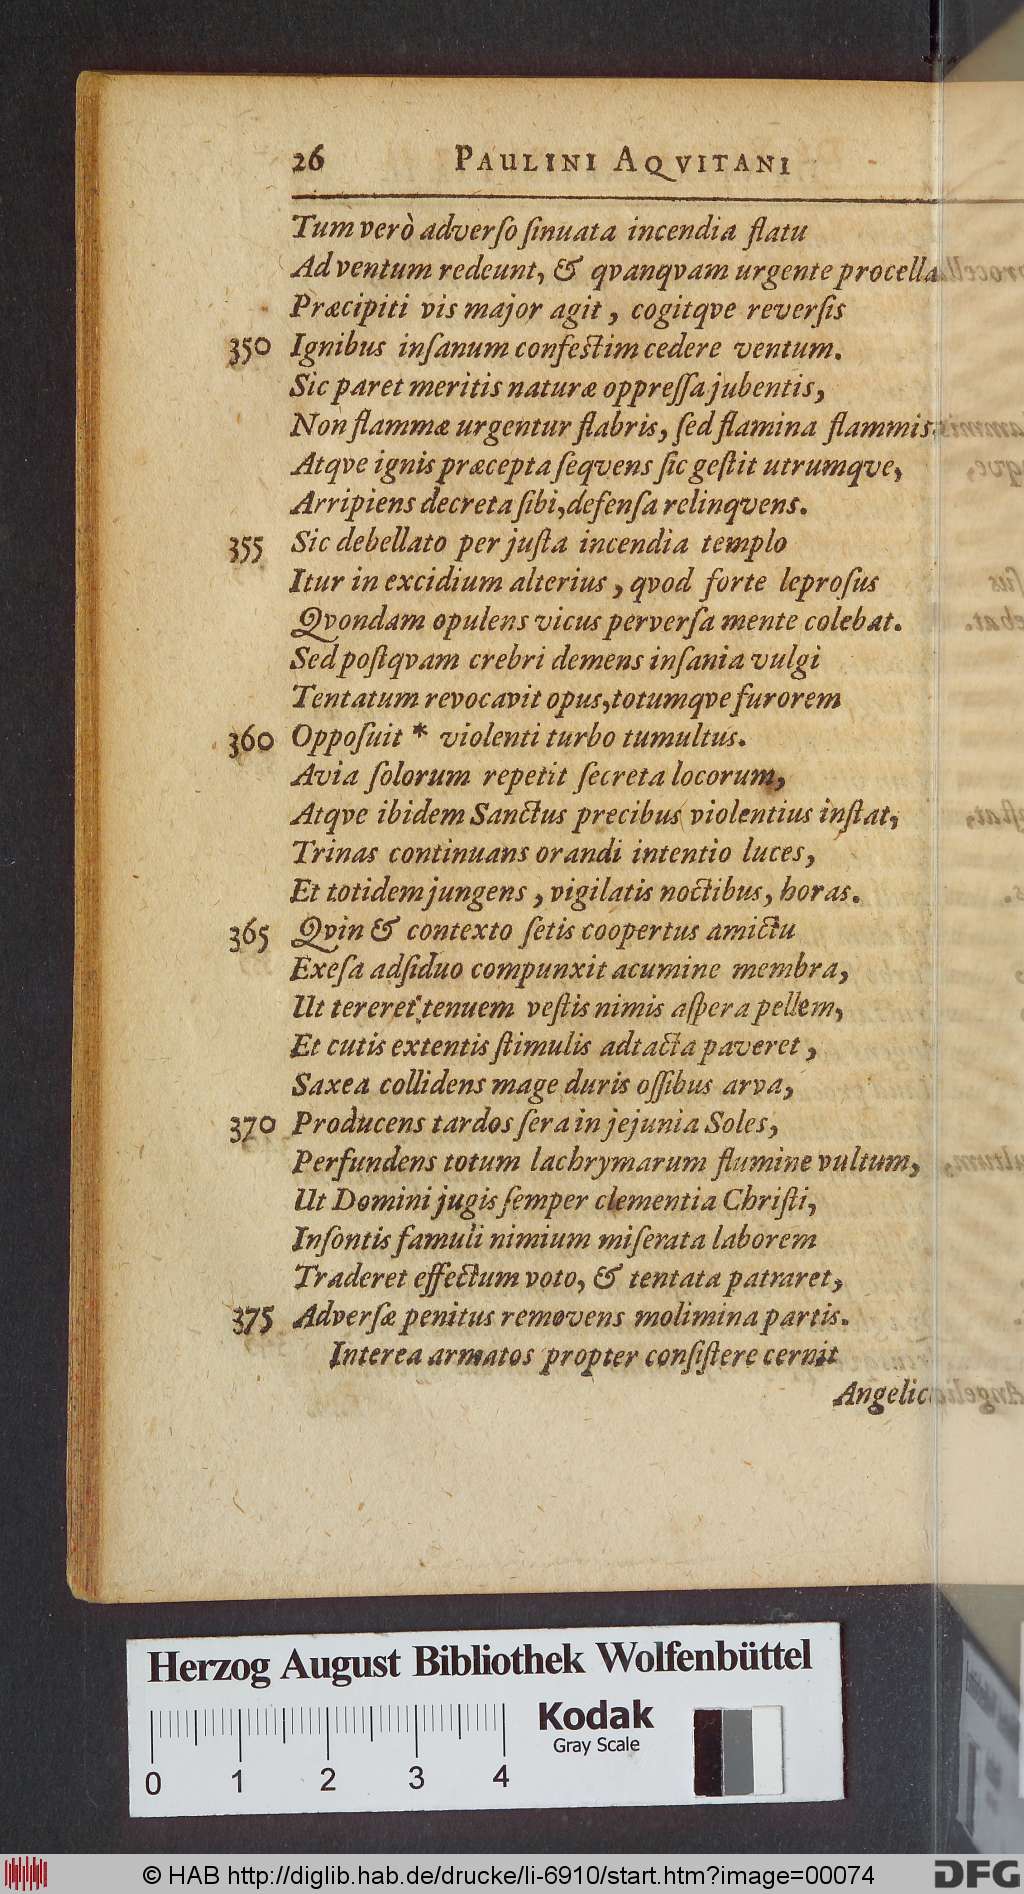 26 PAULINI AQVITANI
Tum verò adverſo ſinuata incendia flatu
Ad ventum redeunt, & qvanqvam urgente procella
Præcipiti vis major agit, cogitqve reverſis
350 Ignibus inſanum confeſtim cedere ventum.
Sic paret meritis naturæ oppreſſa jubentis,
Non flammæ urgentur flabris, ſed flamina flammis.
Atqve ignis præcepta ſeqvens ſic geſtit utrumqve,
Arripiens decreta ſibi, defenſa relinqvens.
355 Sic debellato per juſta incendia templo
Itur in excidium alterius, qvod forte leproſus
Qvondam opulens vicus perverſa mente colebat.
Sed poſtqvam crebri demens inſania vulgi
Tentatum revocavit opus, totumqve furorem
360 Oppoſuit * violenti turbo tumultus.
Avia ſolorum repetit ſecreta locorum,
Atqve ibidem Sanctus precibus violentius inſtat,
Trinas continuans orandi intentio luces,
Et totidem jungens, vigilatis noctibus, horas.
365 Qvin & contexto ſetis coopertus amictu
Exeſa adſiduo compunxit acumine membra,
Ut tereret tenuem veſtis nimis aſpera pellem,
Et cutis extentis ſtimulis adtacta paveret,
Saxea collidens mage duris oſſibus arva,
370 Producens tardos ſera in jejunia Soles,
Perfundens totum lachrymarum flumine vultum,
Ut Domini jugis ſemper clementia Chriſti,
Inſontis famuli nimium miſerata laborem
Traderet effectum voto, & tentata patraret,
375 Adverſæ penitus removens molimina partis.
Interea armatos propter conſiſtere cernit
Angelic
Herzog August Bibliothek Wolfenbüttel
Kodak
Gray Scale
0 1 2 3 4
© HAB http://diglib.hab.de/drucke/li-6910/start.htm?image=00074
DFG